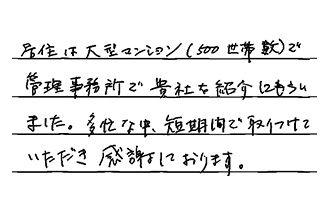 居住は大型マンション(500世帯数)で
管理事務所で貴社を紹介してもらい
ました。多忙な中、短期間で取りつけて
いただき感謝しております。